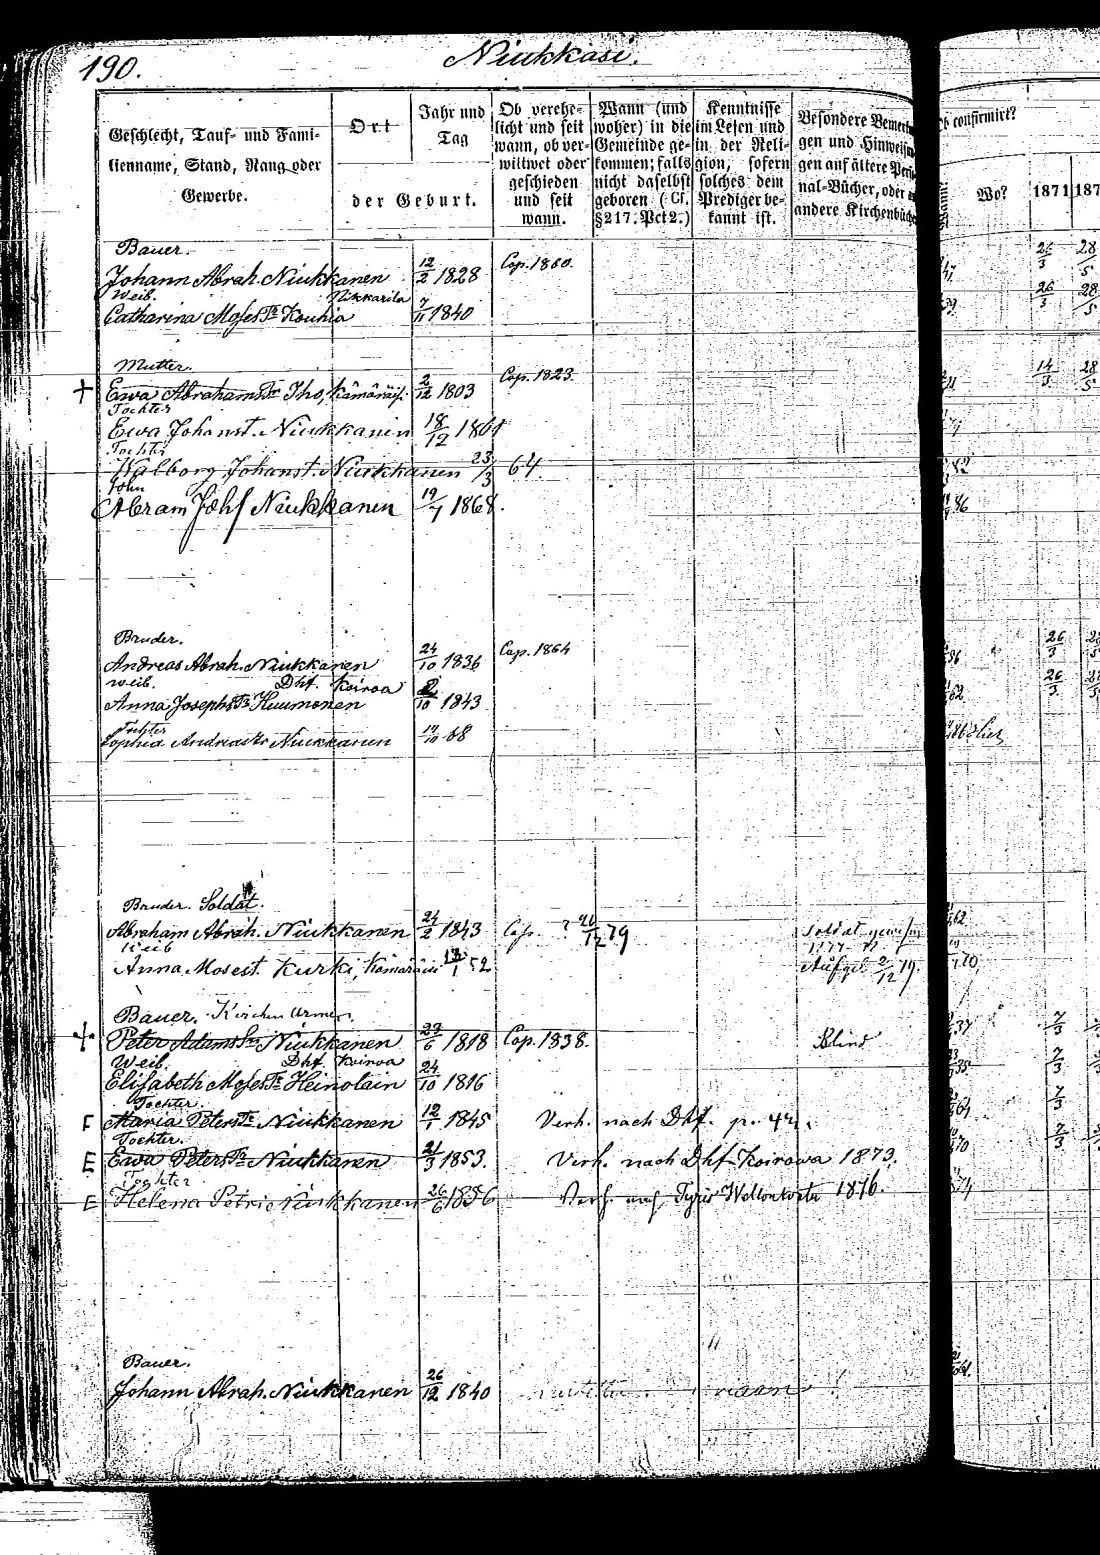 190.
Niukkasi.
Geschlecht, Tauf- und Fami-
lienname, Stand, Rang oder
Gewerbe.
Ort
der Geburt.
Jahr und
Tag
Ob verehe-
licht und seit
wann, ob ver-
wittwet oder
geschieden
und seit
wann.
Wann (und
woher) in die
Gemeinde ge-
kommen; falls
nicht daselbst
geboren (Cf.
§217. Pct 2.)
Kenntnisse
im Lesen und
in der Reli-
gion, sofern
solches dem
Prediger be-
kannt ist.
Besondere
gen und
gen auf ältere
nal-Bücher, oder
andere
confirmirt?
Wo?
1871
187
Bauer.
Johann Abrah. Niukkanen 12/2 1828 Cop. 1860. 26/3 28/5
Weib. Nikkarila
Catharina Moses Tr Kouhia 7/11 1840 26/3 28/5
Mutter.
† Ewa Abrahams Tr Iho, Kämäräis. 2/12 1803 Cop. 1823. 14/3 28/5
Tochter
Ewa Johanst. Niukkanen 18/12 1861
Tochter
Walborg Johanst. Niukkanen 23/3 64. 82
Sohn
Abram Johs Niukkanen 19/7 1868. 86
Bruder.
Andreas Abrah. Niukkanen 24/10 1836 Cop. 1864 56 26/3
Weib. Dhf. Koiroa
Anna Josephs Tr Huumonen 10 1843 62 26/3
Tochter
Sophia Andreastr Niukkanen 68
Bruder. Soldat.
Abraham Abrah. Niukkanen 24/2 1843 Cop. 12 79 Soldat 62
Weib
Anna Mosest. Kurki, Kämäräis 1 52 Aufgeb. 2/12 79. 70
Bauer. Kirchen
† Peter Adams Sn Niukkanen 29/6 1818 Cop. 1838. Blind 37 7/3
Weib. Dhf Koiroa
Elisabeth Moses Tr Heinolain 24/10 1816 35 7/3
Tochter.
F Maria Peters Tr Niukkanen 12/1 1845 Verh. nach Dhf. p. 44. 64 7/3
Tochter.
E Ewa Peters Tr Niukkanen 21/3 1853. Verh. nach Dhf. Koirowa 1873. 70 7/3
Tochter
E Helena Petri Niukkanen 26/6 1856 Verh. 1876. 74
Bauer.
Johann Abrah. Niukkanen 26/12 1840